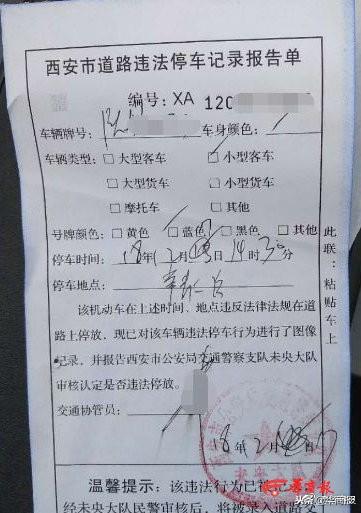 西安市道路违法停车记录报告单
编号: XA 120
车辆牌号: 陕 车身颜色:
车辆类型: □大型客车 □小型客车
□大型货车 □小型货车
□摩托车 □其他
号牌颜色: □黄色 □蓝色 □黑色 □其他
停车时间: 18年12月 日14时30分
停车地点:
该机动车在上述时间、地点违反法律法规在道
路上停放,现已对该车辆违法停车行为进行了图像
记录,并报告西安市公安局交通警察支队未央大队
审核认定是否违法停放。
交通协管员:
18年12月 日
此联:粘贴车上
温馨提示: 该违法行为已
经未央大队民警审核后,将被录入道路交
华商报
头条@华商报